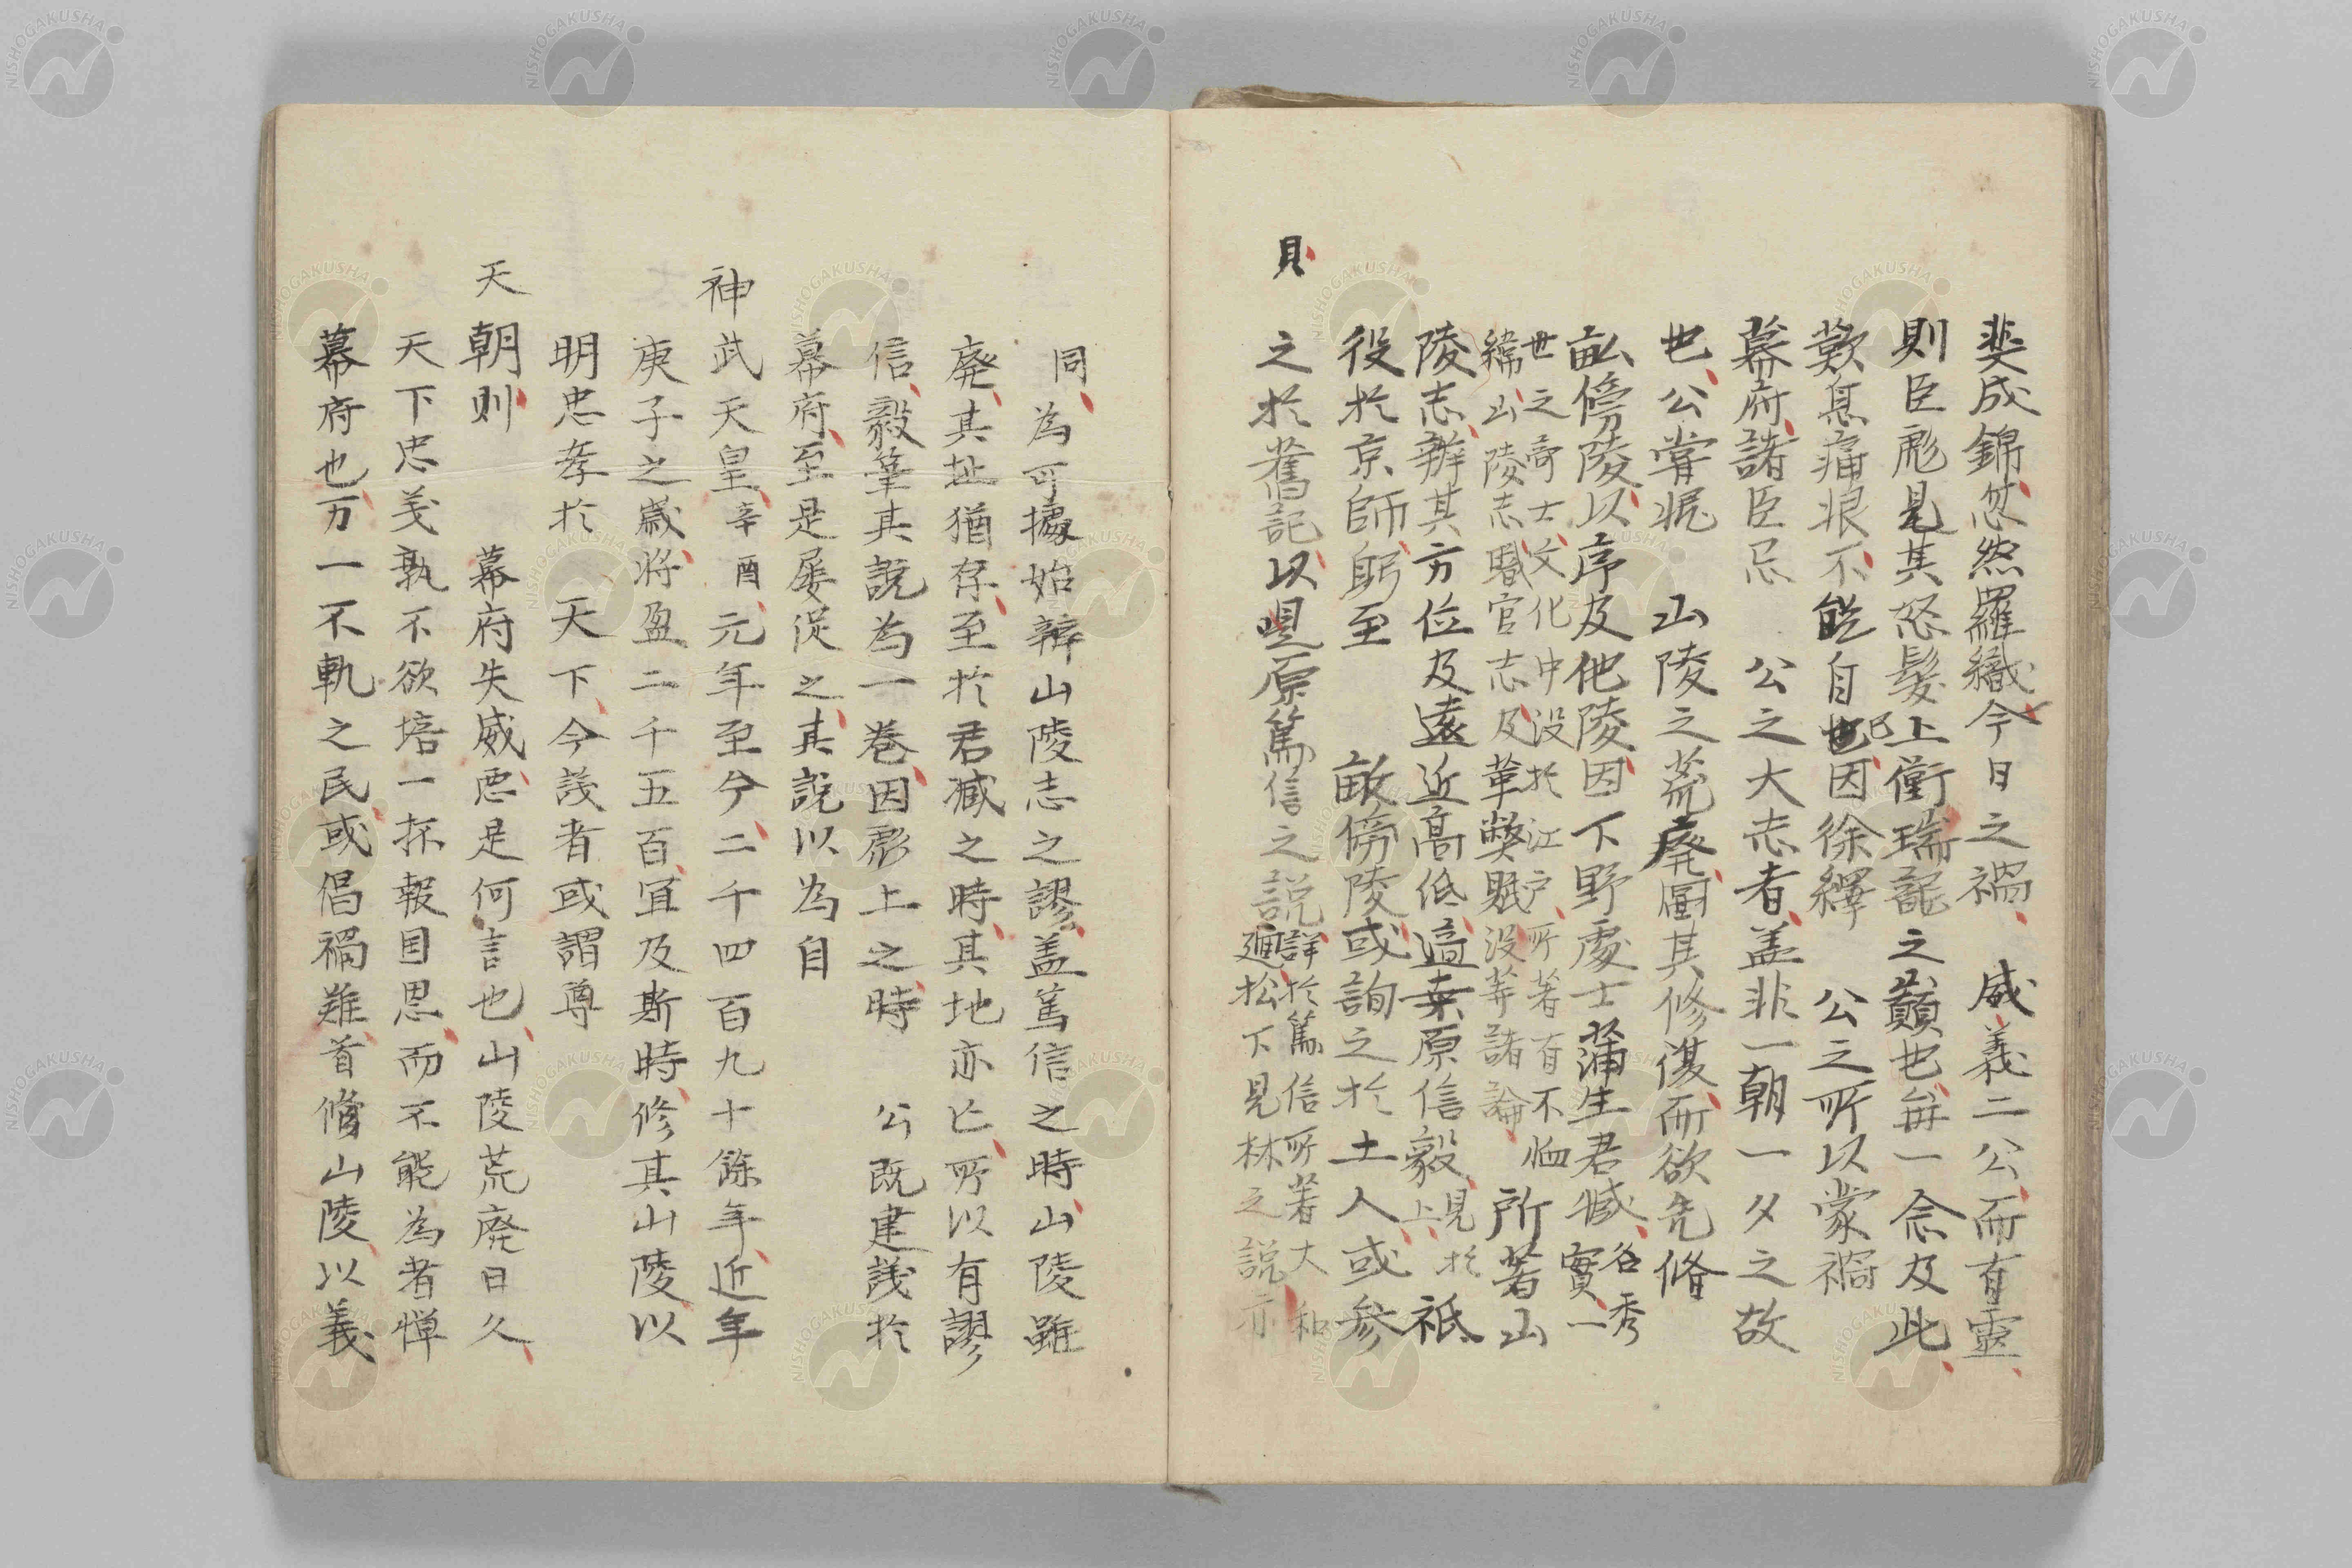 斐成錦忽然羅織今日之禍　威義二公而有靈
則臣彪見其怒髮上衝瑞龍之巓也每一念及此
歎息痛恨不能自已也因徐繹　公之所以蒙禍
幕府諸臣忌　公之大志者盖非一朝一夕之故
也公嘗慨　山陵之荒廃圖其修復而欲先脩
畝傍陵以序及他陵因下野處士蒲生君臧名秀實一
世之奇士文化中没於江戸所著有不恤
緯山陵志職官志及革弊賦没著諸論所著山
陵志辨其方位及遠近高低適桒原信毅見上於祗
役於京師躬至　畝傍陵或詢之於土人或参
之於舊記以
貝
原篤信之説詳於篤信所著大和
廻松下見林之説亦
同為可據始辨山陵志之謬盖篤信之時山陵雖
廃其址猶存至於君臧之時其地亦亡所以有謬
信毅筆其説為一巻因彪上之時　公既建議於
幕府至是屡從之其説以為自
神武天皇辛酉元年至今二千四百九十餘年近年
庚子之歳将盈二千五百宜及斯時修其山陵以
明忠孝於　天下今議者或謂尊
天朝則　幕府失威悪是何言也山陵荒廃日久
天下忠義孰不欲培一抔報国恩而不能為者憚
幕府也万一不軌之民或倡禍難首脩山陵以義